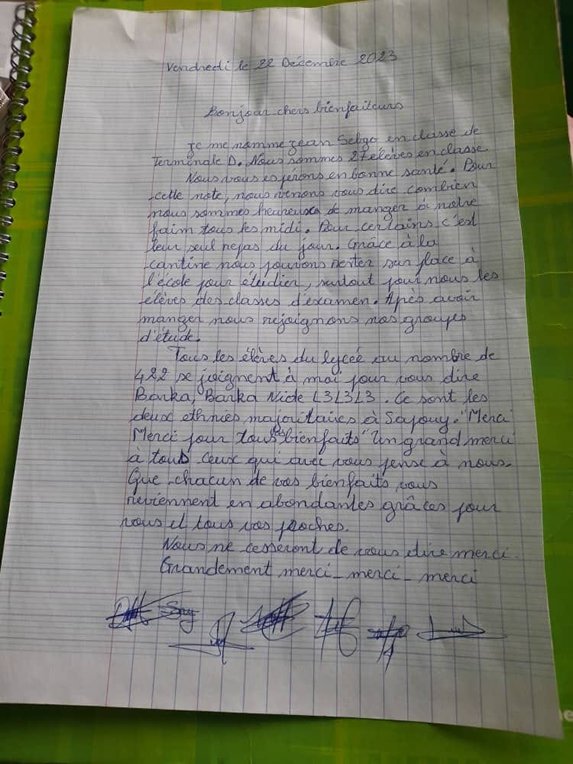 Vendredi le 22 Décembre 2023
Bonjour chers bienfaiteurs
Je me nomme Jean Sebgo en classe de
Terminale D. Nous sommes 27 élèves en classe
Nous vous espérons en bonne santé. Pour
cette note, nous venons vous dire combien
nous sommes heureux de manger à notre
faim tous les midi. Pour certains c'est
leur seul repas du jour. Grâce à la
cantine nous pouvons rester sur place à
l'école pour étudier, surtout pour nous les
élèves des classes d'examen. Après avoir
manger nous rejoignons nos groupes
d'étude.
Tous les élèves du lycée au nombre de
422 se joignent à moi pour vous dire
Barka, Barka Nide L3L3L3. Ce sont les
deux ethnies majoritaires à Sapouy. "Merci
Merci pour tous les bienfaits" Un grand merci
à tous ceux qui avec vous pense à nous.
Que chacun de vos bienfaits vous
reviennent en abondantes grâces pour
vous et tous vos proches.
Nous ne cesseront de vous dire merci.
Grandement merci_merci_merci